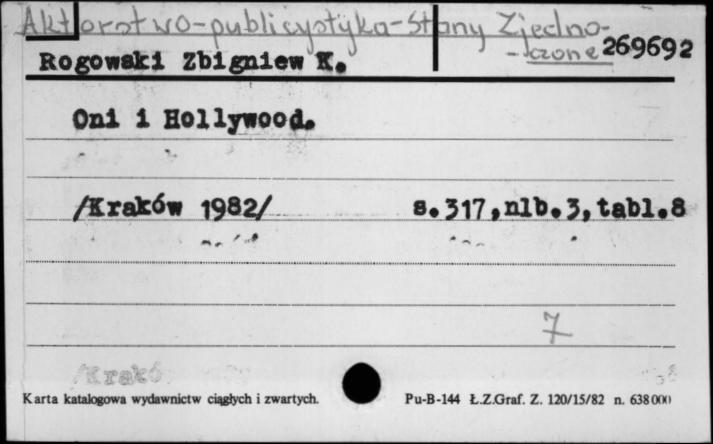 Aktorstwo-publicystyka-Stany Zjedno-
-czone 269692
Rogowski Zbigniew K.
Oni i Hollywood.
/Kraków 1982/ s.317,nlb.3,tabl.8
7
/Krakó
Karta katalogowa wydawnictw ciągłych i zwartych. Pu-B-144 Ł.Z.Graf. Z. 120/15/82 n. 638000